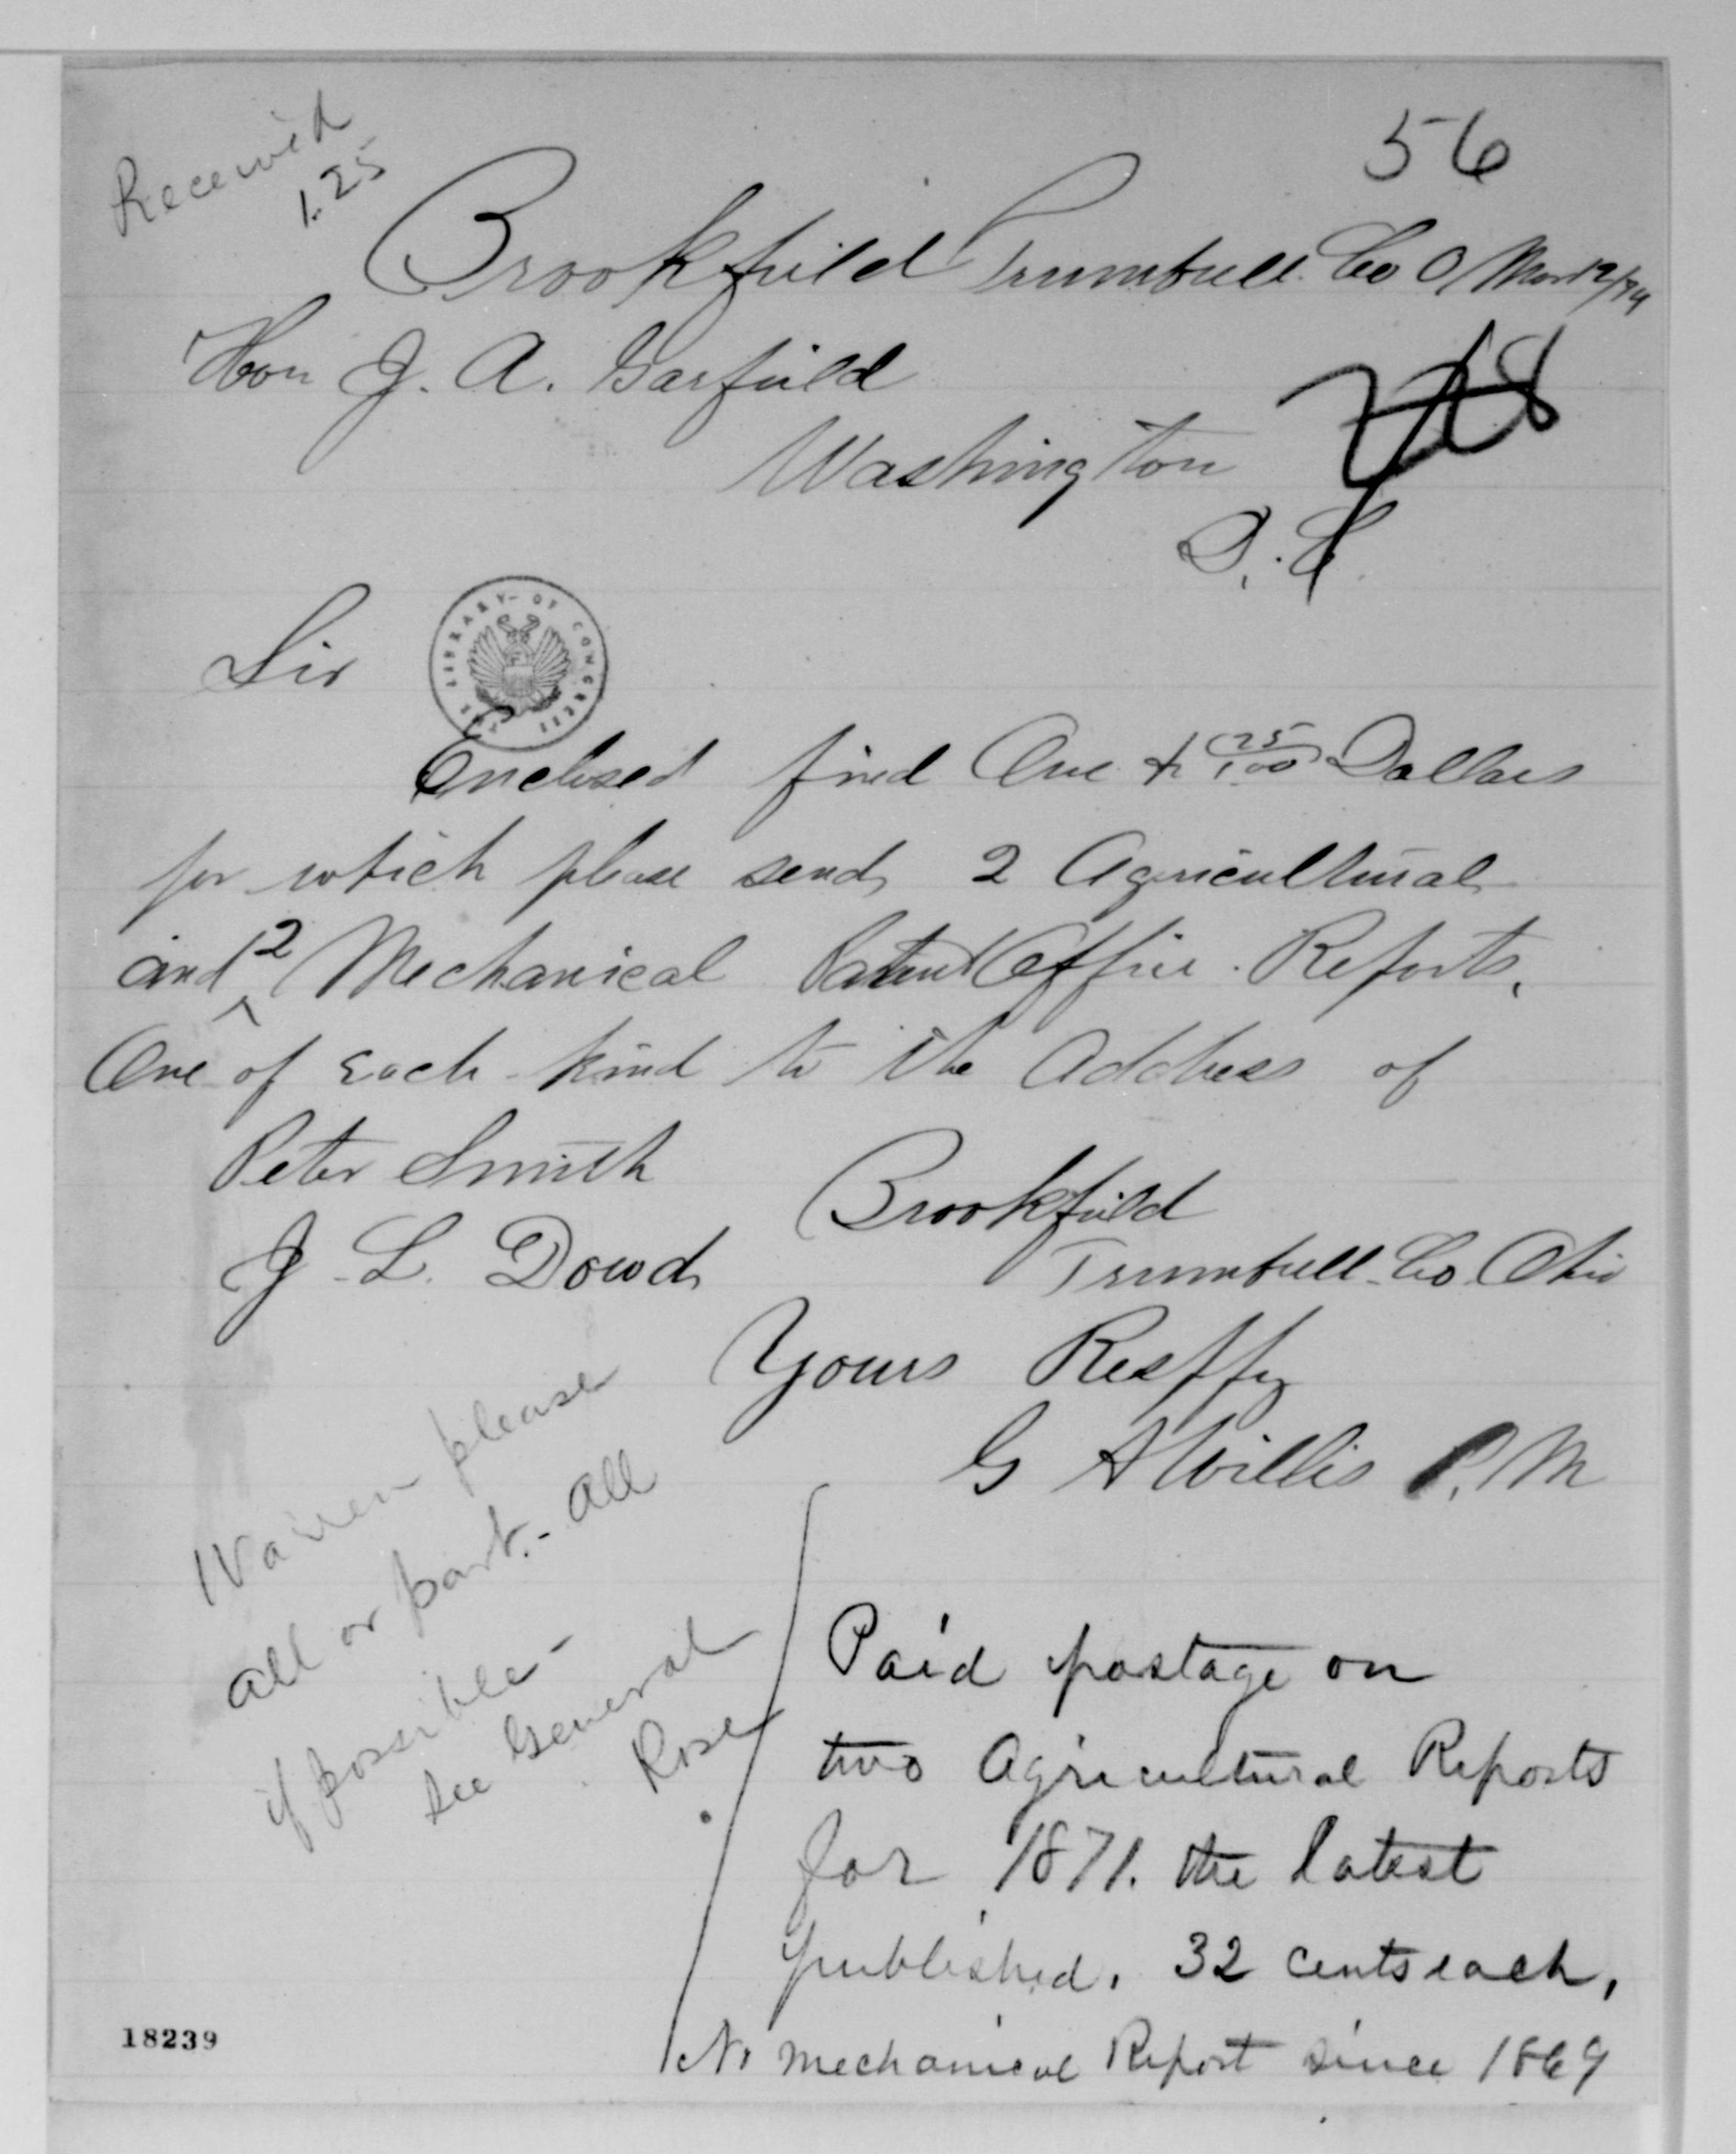 Received
1.25
56
Brookfield Trumbull Co O Mar 12/74
Hon J. A. Garfield
Washington
D. C.
Sir
THE LIBRARY OF CONGRESS
Enclosed find One & 25/100 Dollars
for which please send 2 Agricultural
and 2 Mechanical Patent Office Reports.
One of each kind to the Address of
Peter Smith
Brookfield
J. L. Dowd
Trumbull Co. Ohio
Yours Respfy
G A Willis P.M
Warren please
all or part. - all
if possible -
See General
Rose
Paid postage on
two Agricultural Reports
for 1871. the latest
published. 32 cents each,
No mechanical Report since 1869
18239